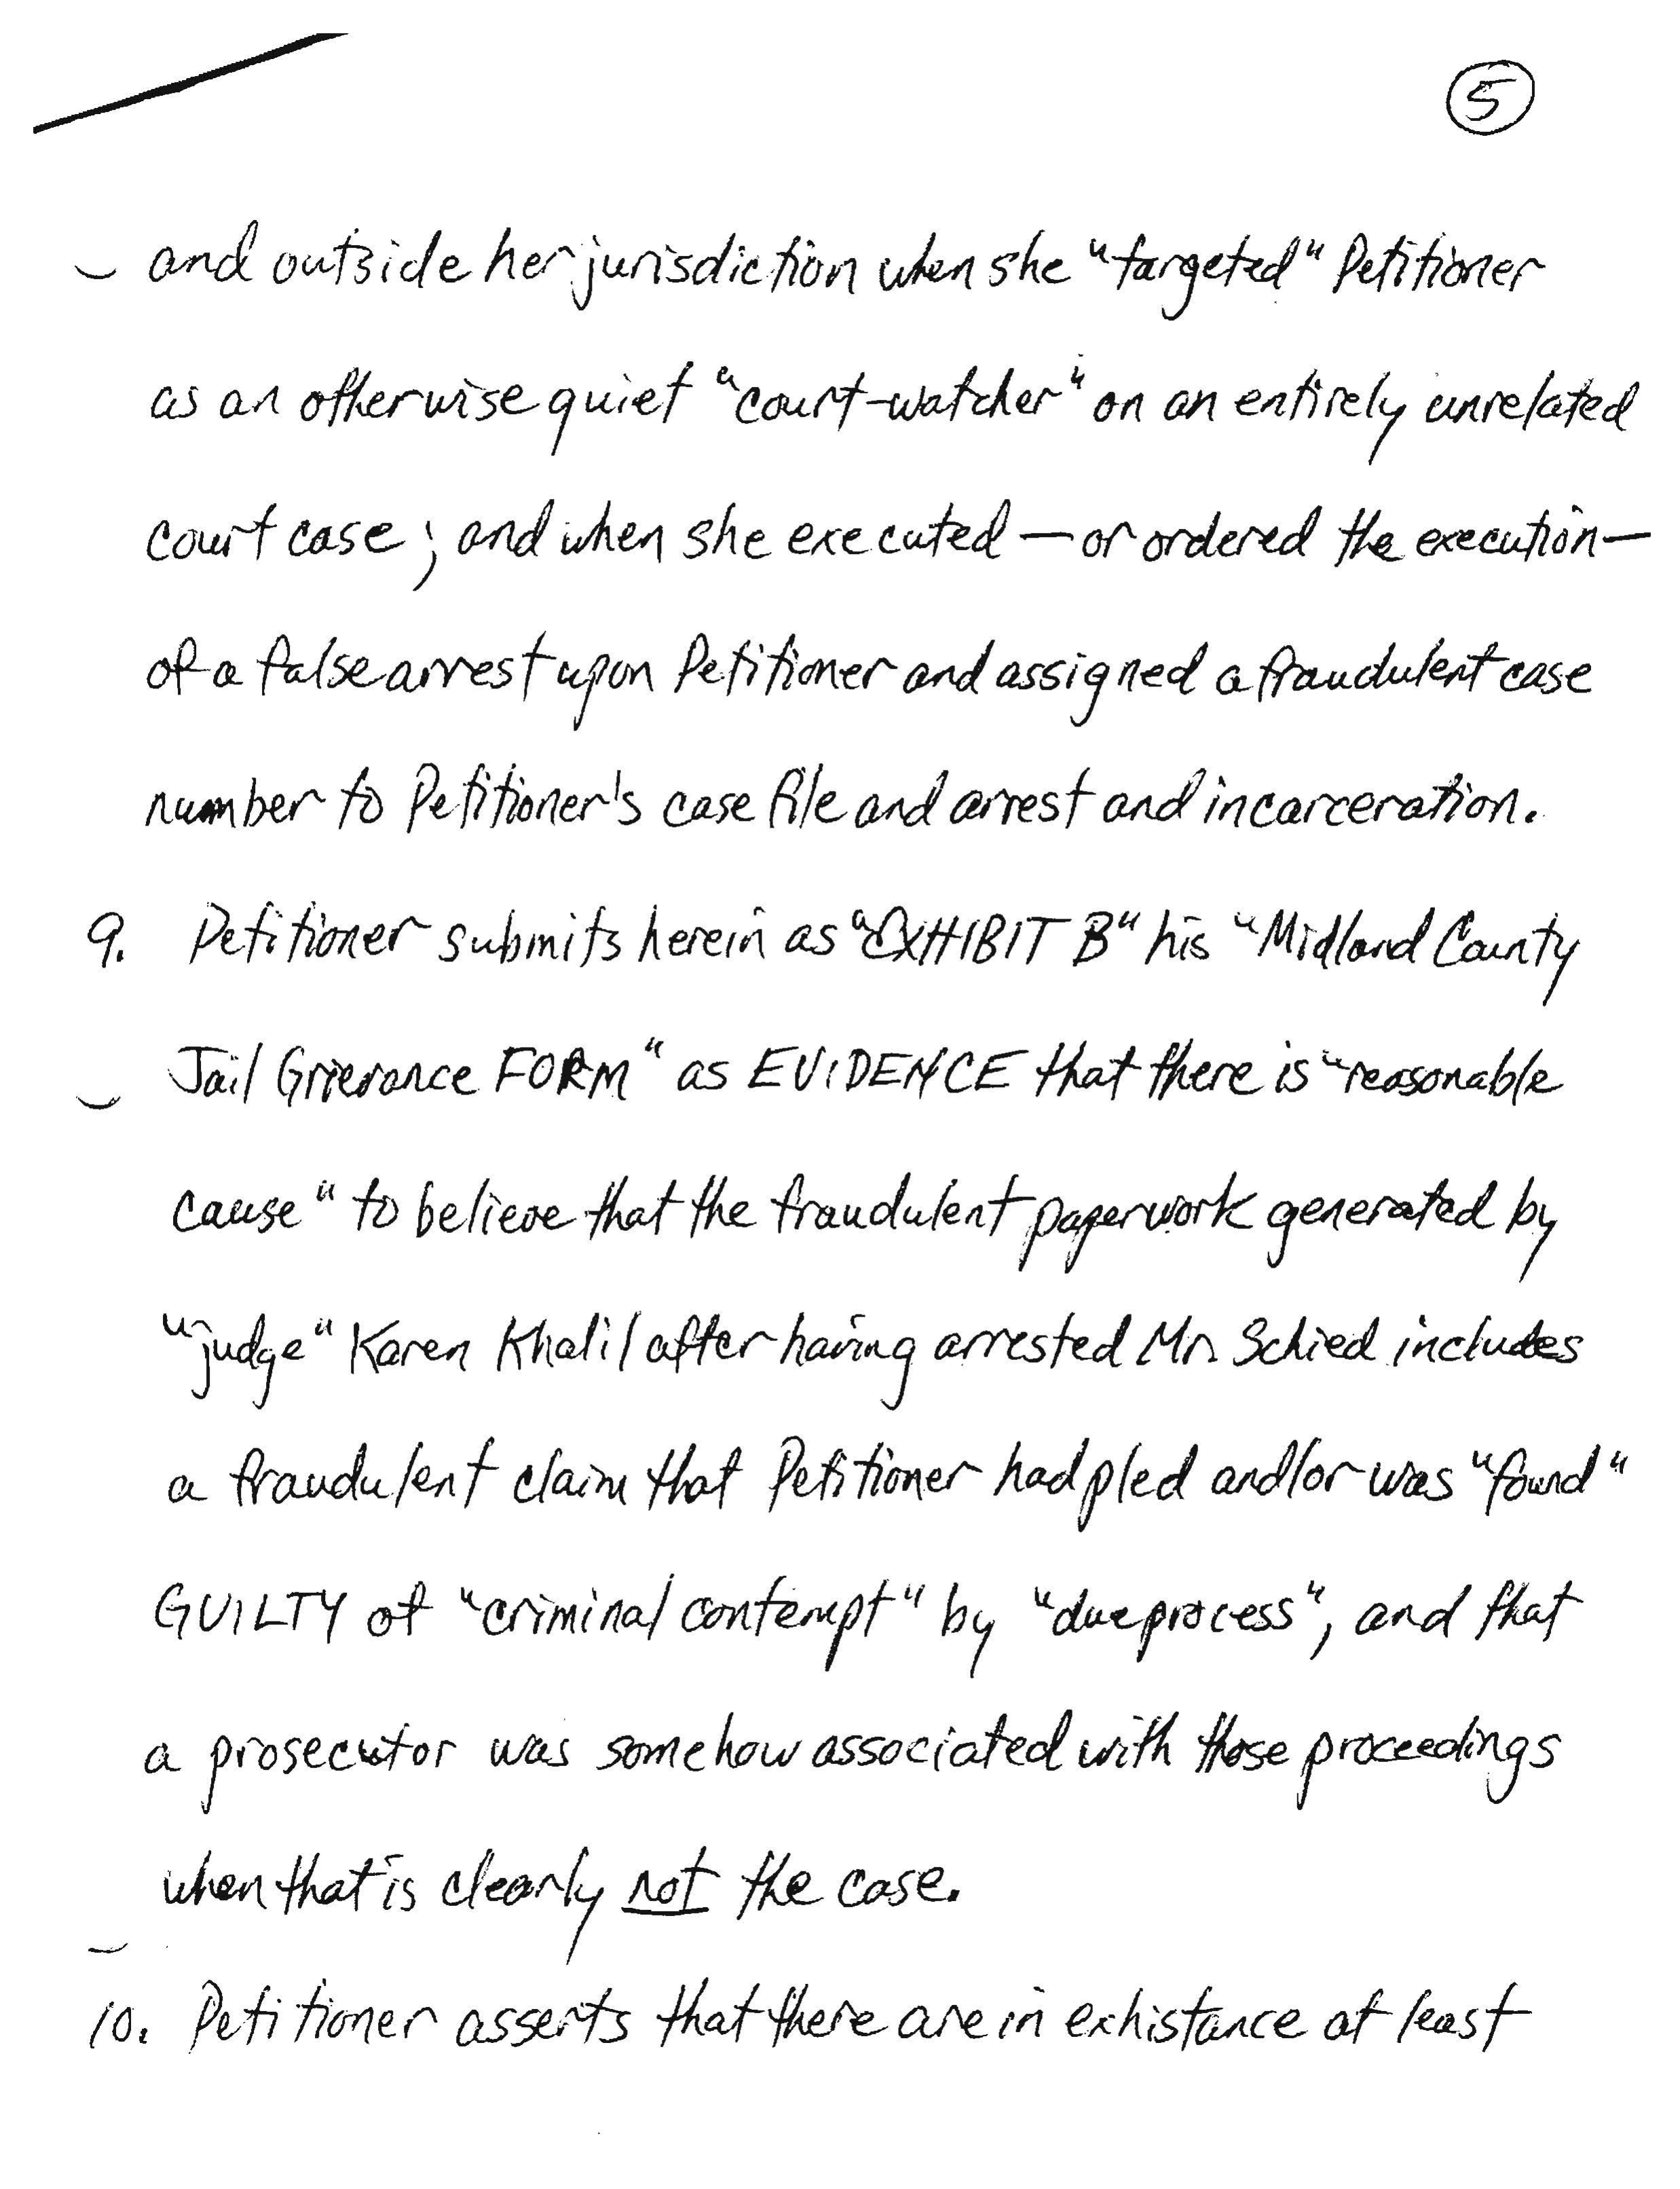 5
and outside her jurisdiction when she "targeted" Petitioner
as an otherwise quiet "court-watcher" on an entirely unrelated
court case; and when she executed — or ordered the execution —
of a false arrest upon Petitioner and assigned a fraudulent case
number to Petitioner's case file and arrest and incarceration.
9. Petitioner submits herein as "EXHIBIT B" his "Midland County
Jail Grierance FORM" as EVIDENCE that there is "reasonable
cause" to believe that the fraudulent paperwork generated by
"judge" Karen Khalil after having arrested Mr. Schied includes
a fraudulent claim that Petitioner had pled and/or was "found"
GUILTY of "criminal contempt" by "due process", and that
a prosecutor was somehow associated with those proceedings
when that is clearly not the case.
10. Petitioner asserts that there are in exhistance at least